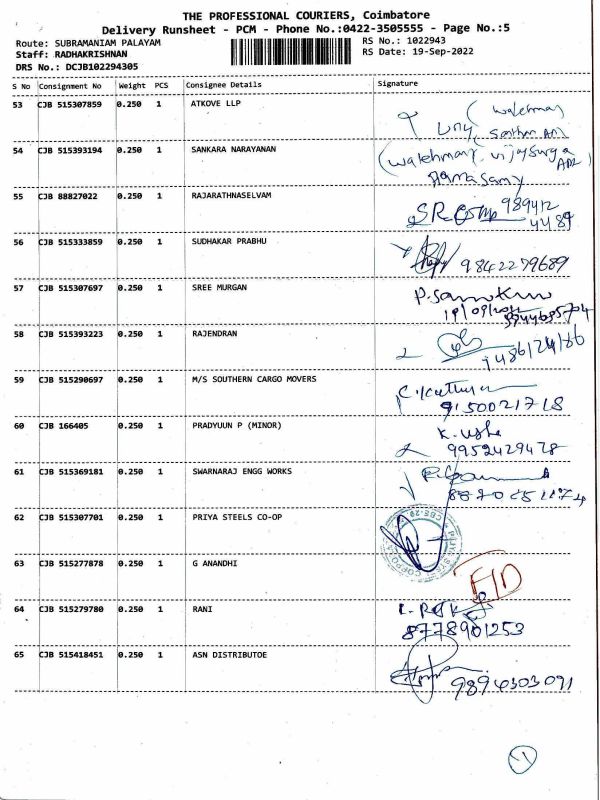 THE PROFESSIONAL COURIERS, Coimbatore
Delivery Runsheet - PCM - Phone No.:0422-3505555 - Page No.:5
Route: SUBRAMANIAM PALAYAM
RS No.: 1022943
Staff: RADHAKRISHNAN
RS Date: 19-Sep-2022
DRS No.: DCJB102294305
S No Consignment No Weight PCS Consignee Details Signature
53 CJB 515307859 0.250 1 ATKOVE LLP
(watchman)
54 CJB 515393194 0.250 1 SANKARA NARAYANAN
(watchman)
Ramasamy
55 CJB 88827022 0.250 1 RAJARATHNASELVAM
989412
4489
56 CJB 515333859 0.250 1 SUDHAKAR PRABHU
9842279689
57 CJB 515307697 0.250 1 SREE MURGAN
58 CJB 515393223 0.250 1 RAJENDRAN
59 CJB 515290697 0.250 1 M/S SOUTHERN CARGO MOVERS
9150021718
60 CJB 166405 0.250 1 PRADYUUN P (MINOR)
K. Usha
9952429478
61 CJB 515369181 0.250 1 SWARNARAJ ENGG WORKS
62 CJB 515307701 0.250 1 PRIYA STEELS CO-OP
63 CJB 515277878 0.250 1 G ANANDHI
F/D
64 CJB 515279780 0.250 1 RANI
8778901253
65 CJB 515418451 0.250 1 ASN DISTRIBUTOE
9894303091